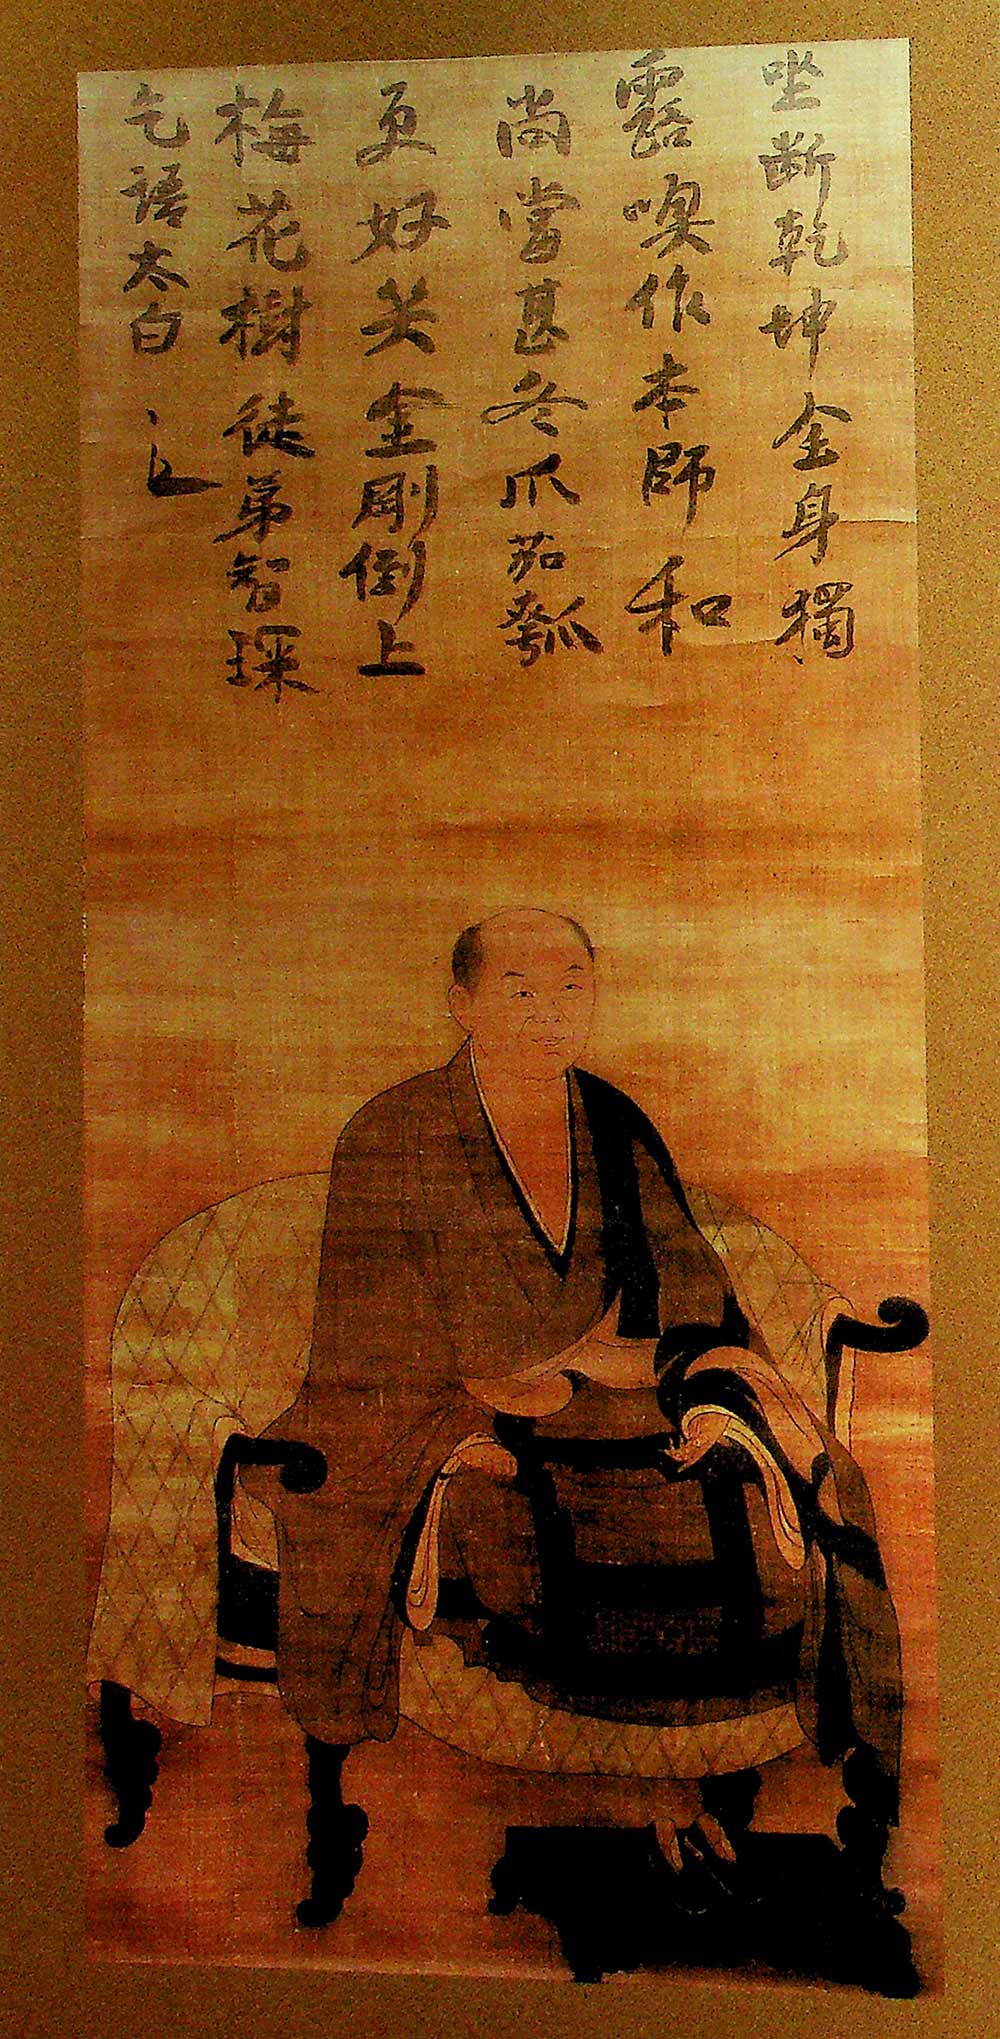 坐断乾坤全身獨
露喚作本師和
尚當甚冬瓜茄瓠
更好笑金剛倒上
梅花樹徒弟智琛
乞語太白